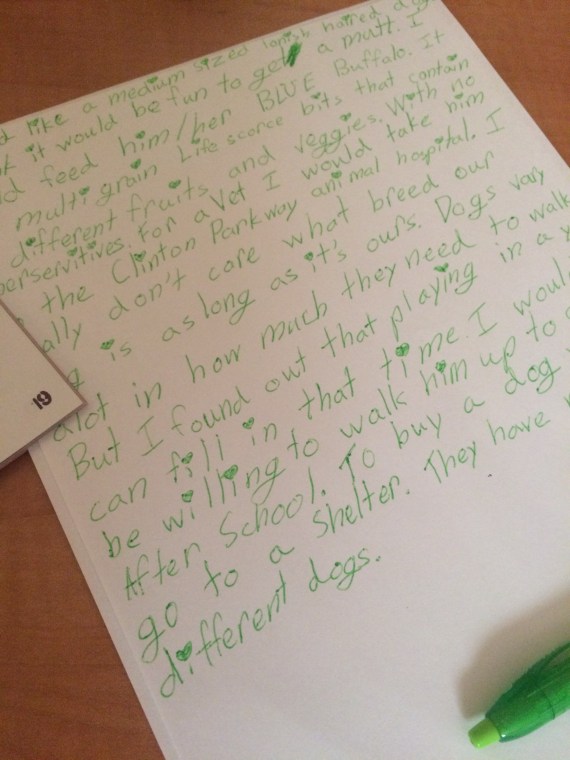 like a medium sized longish haired dog
it would be fun to get a mutt. I
feed him/her BLUE Buffalo. It
multi grain Life scorce bits that contain
different fruits and veggies. With no
perservitives. For a vet I would take him
the Clinton Parkway animal hospital. I
ally don't care what breed our
is as long as it's ours. Dogs vary
alot in how much they need to walk
But I found out that playing in a y
can fill in that time. I woul
be willing to walk him up to
After School. To buy a dog
go to a shelter. They have
different dogs.
19